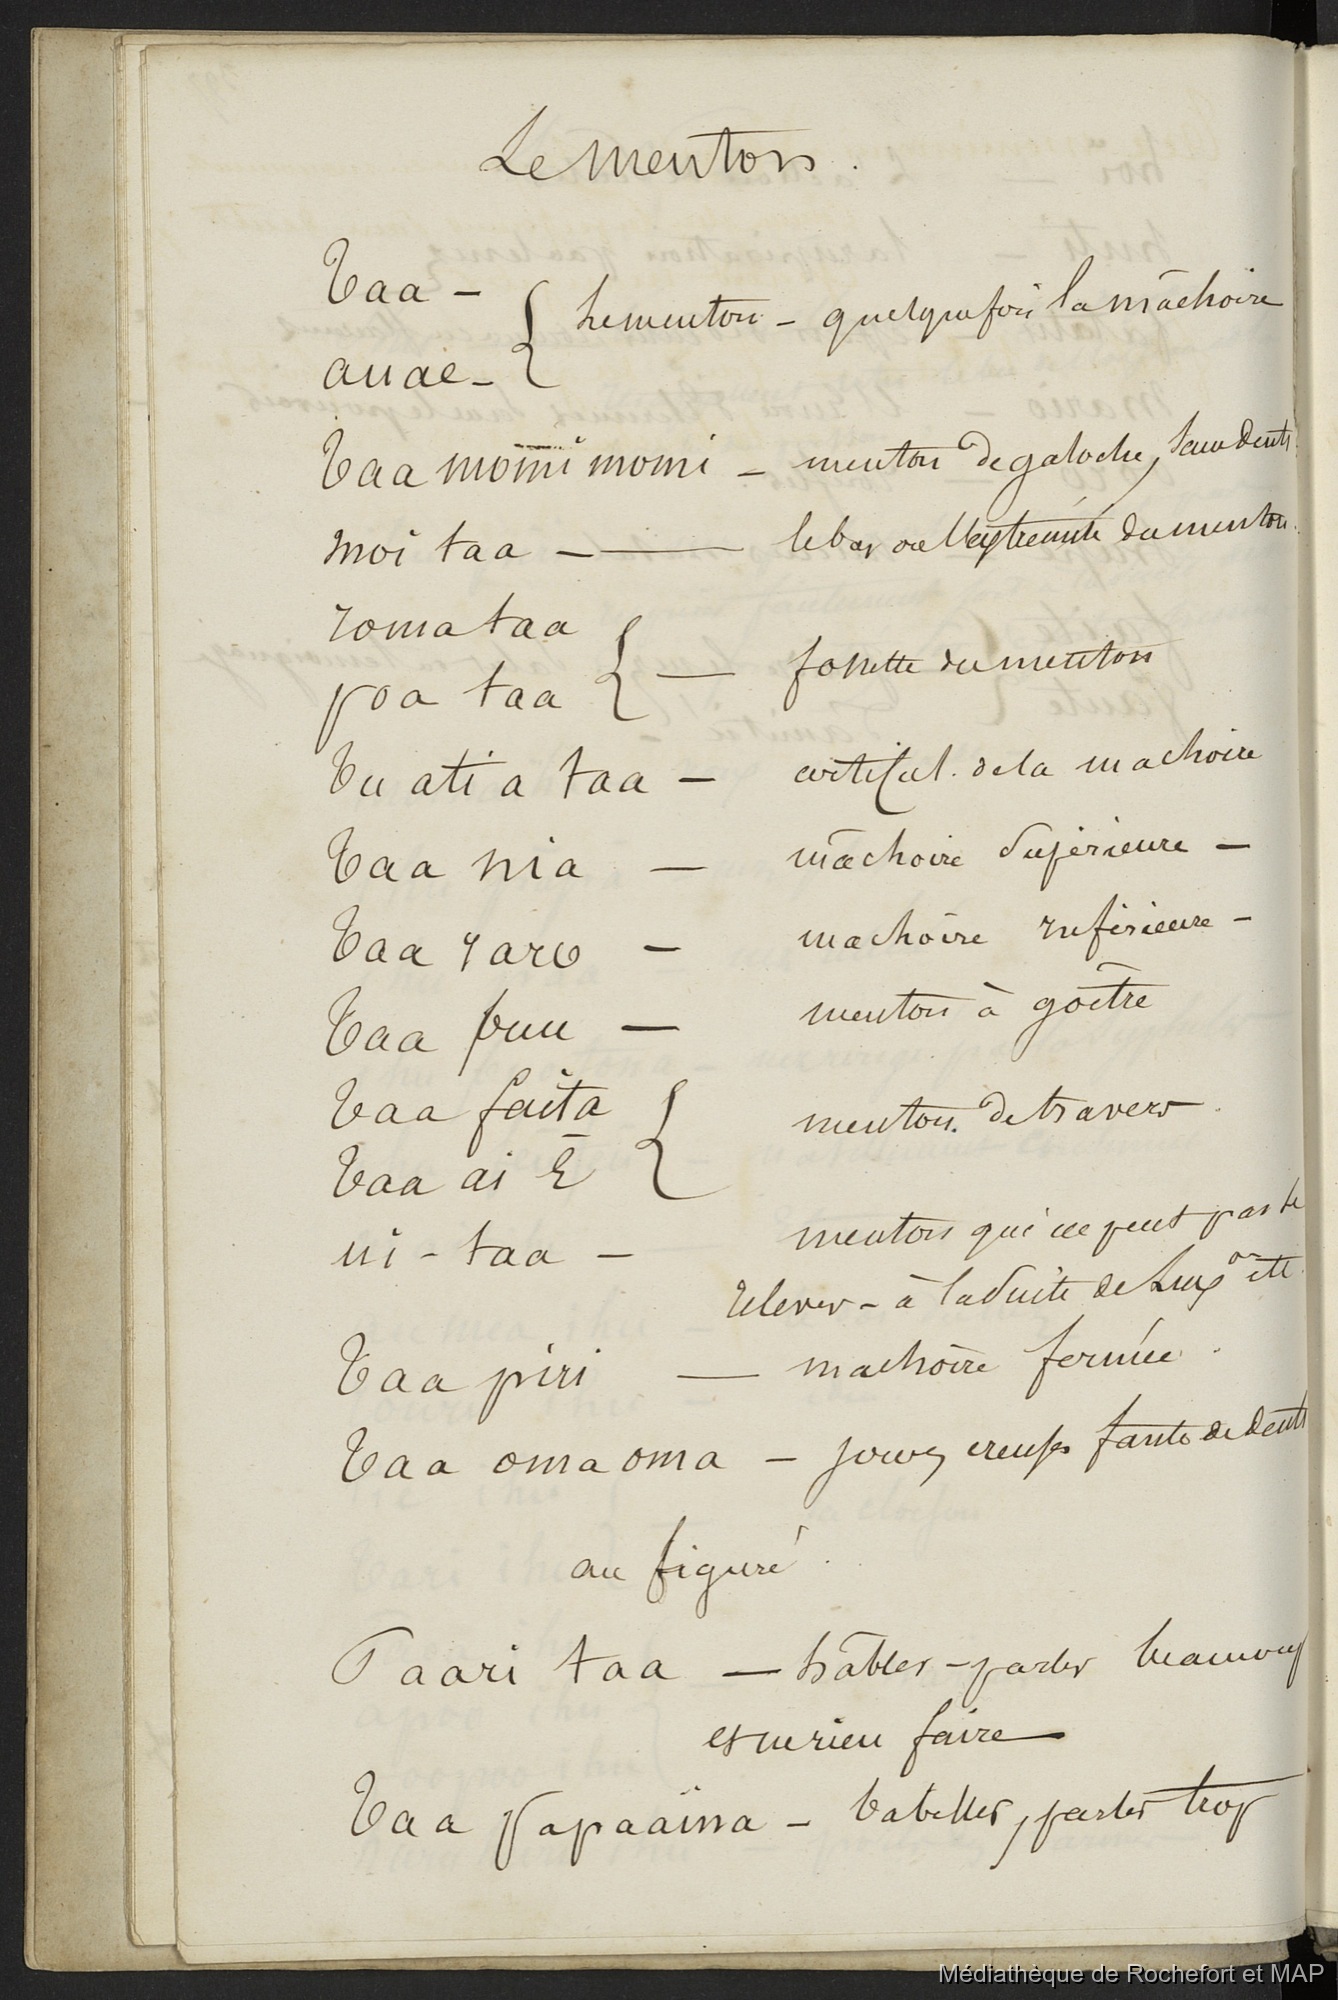 Le menton.
Taa -
auae -
Le menton - quelquefois la mâchoire
Taa momi momi - menton de galoche, sans dents
moi taa - le bas ou l'extrémité du menton.
roma taa
poa taa
fossette du menton
Tu ati a taa - articul. de la machoire
Taa nia - mâchoire supérieure -
Taa raro - machoire inférieure -
Taa puu - menton à goître
Taa faita
Taa ai ē
menton de travers.
ui - taa - menton qui ne peut pas se
relever - à la suite de
Taa piri - machoire fermée.
Taa oma oma - joues creuses faute de dents
au figuré.
Paari taa - hâbler - parler beaucoup
et ne rien faire -
Taa papaaina - babiller, parler trop
Médiathèque de Rochefort et MAP